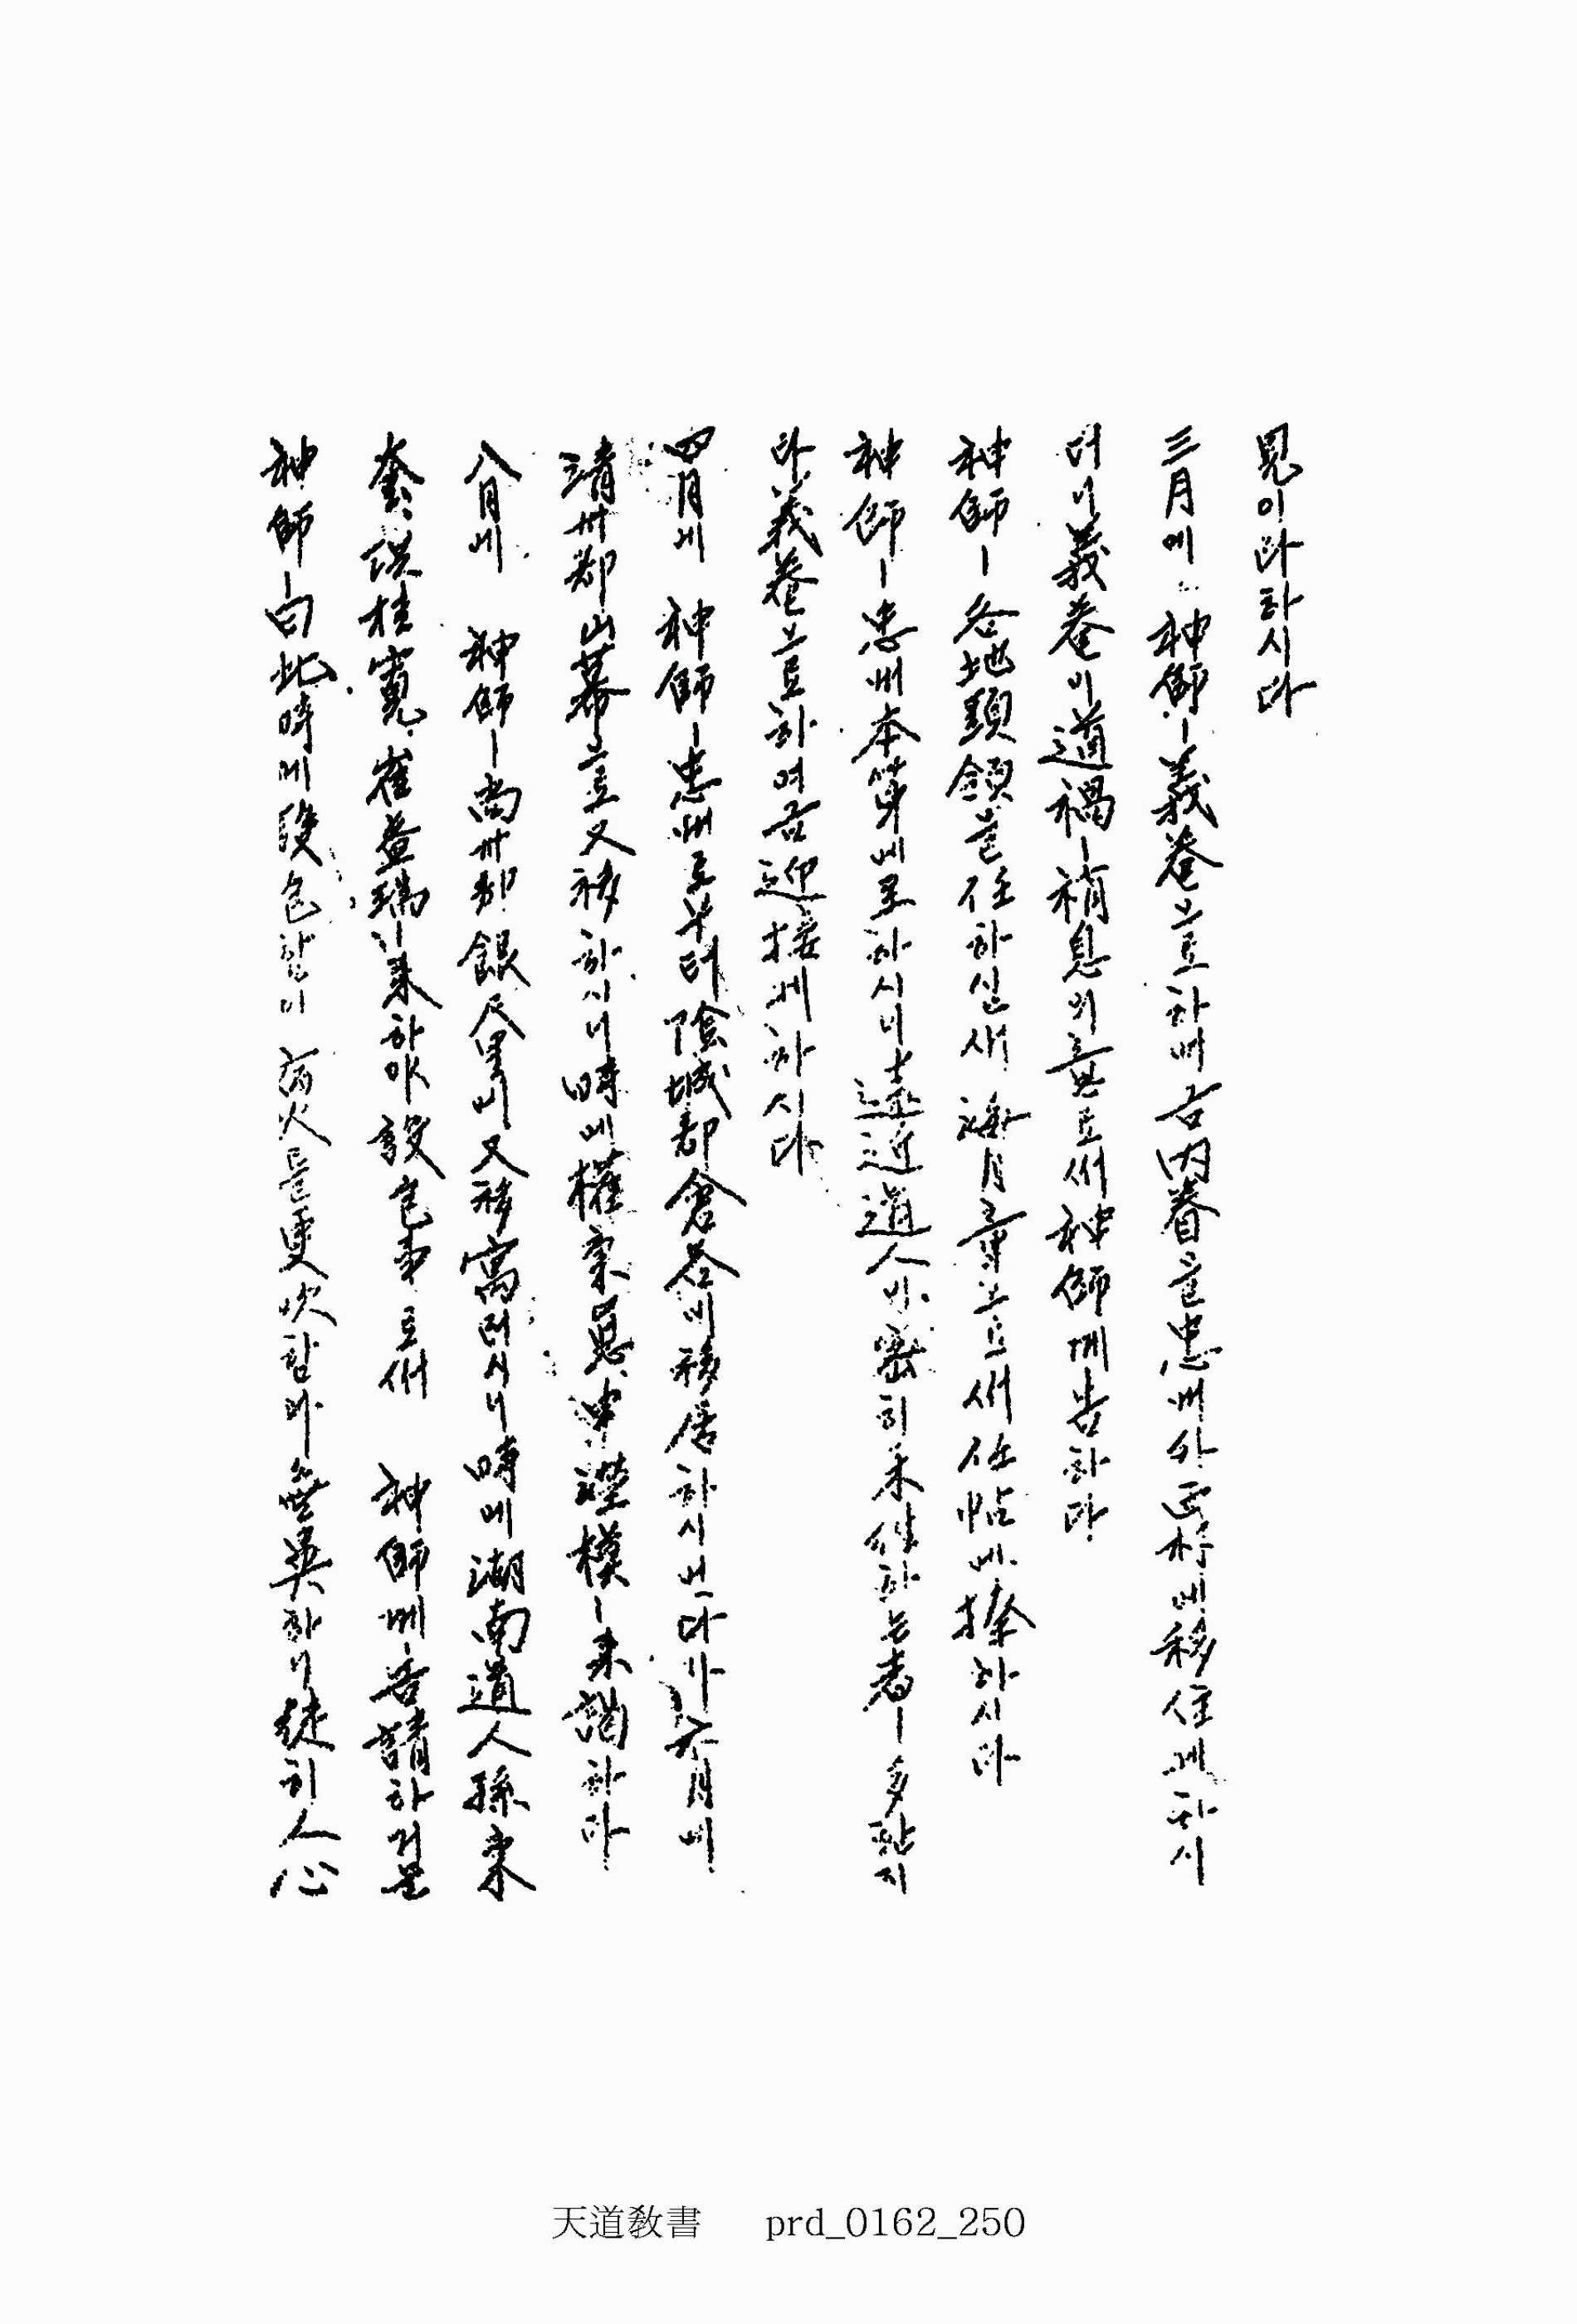 見이라하시다
三月에 神師ㅣ義菴으로하여금內眷을忠州外西村에移住케하시
더니義菴이道禍ㅣ稍息의意로써神師께告하다
神師ㅣ各地頭領을任하실새 海月章으로써任帖에捺하시다
神師ㅣ忠州本第에로하시니遠近道人이密히來往하는者ㅣ多한지
라義菴으로하여금迎接케하시다
四月에 神師ㅣ忠州로부터陰城郡倉谷에移居하시넛다가六月에
淸州郡山幕으로又移하시니時에權秉悳申澤模ㅣ來謁하다
八月에 神師ㅣ尙州郡銀尺里에又移寓러시니時에湖南道人孫秉
奎洪桂寬崔益瑞ㅣ來하야設包事로써 神師께告請하거늘
神師ㅣ曰此時에設包함이 荷火를更吹함과無異하니徒히人心
天道敎書 prd_0162_250